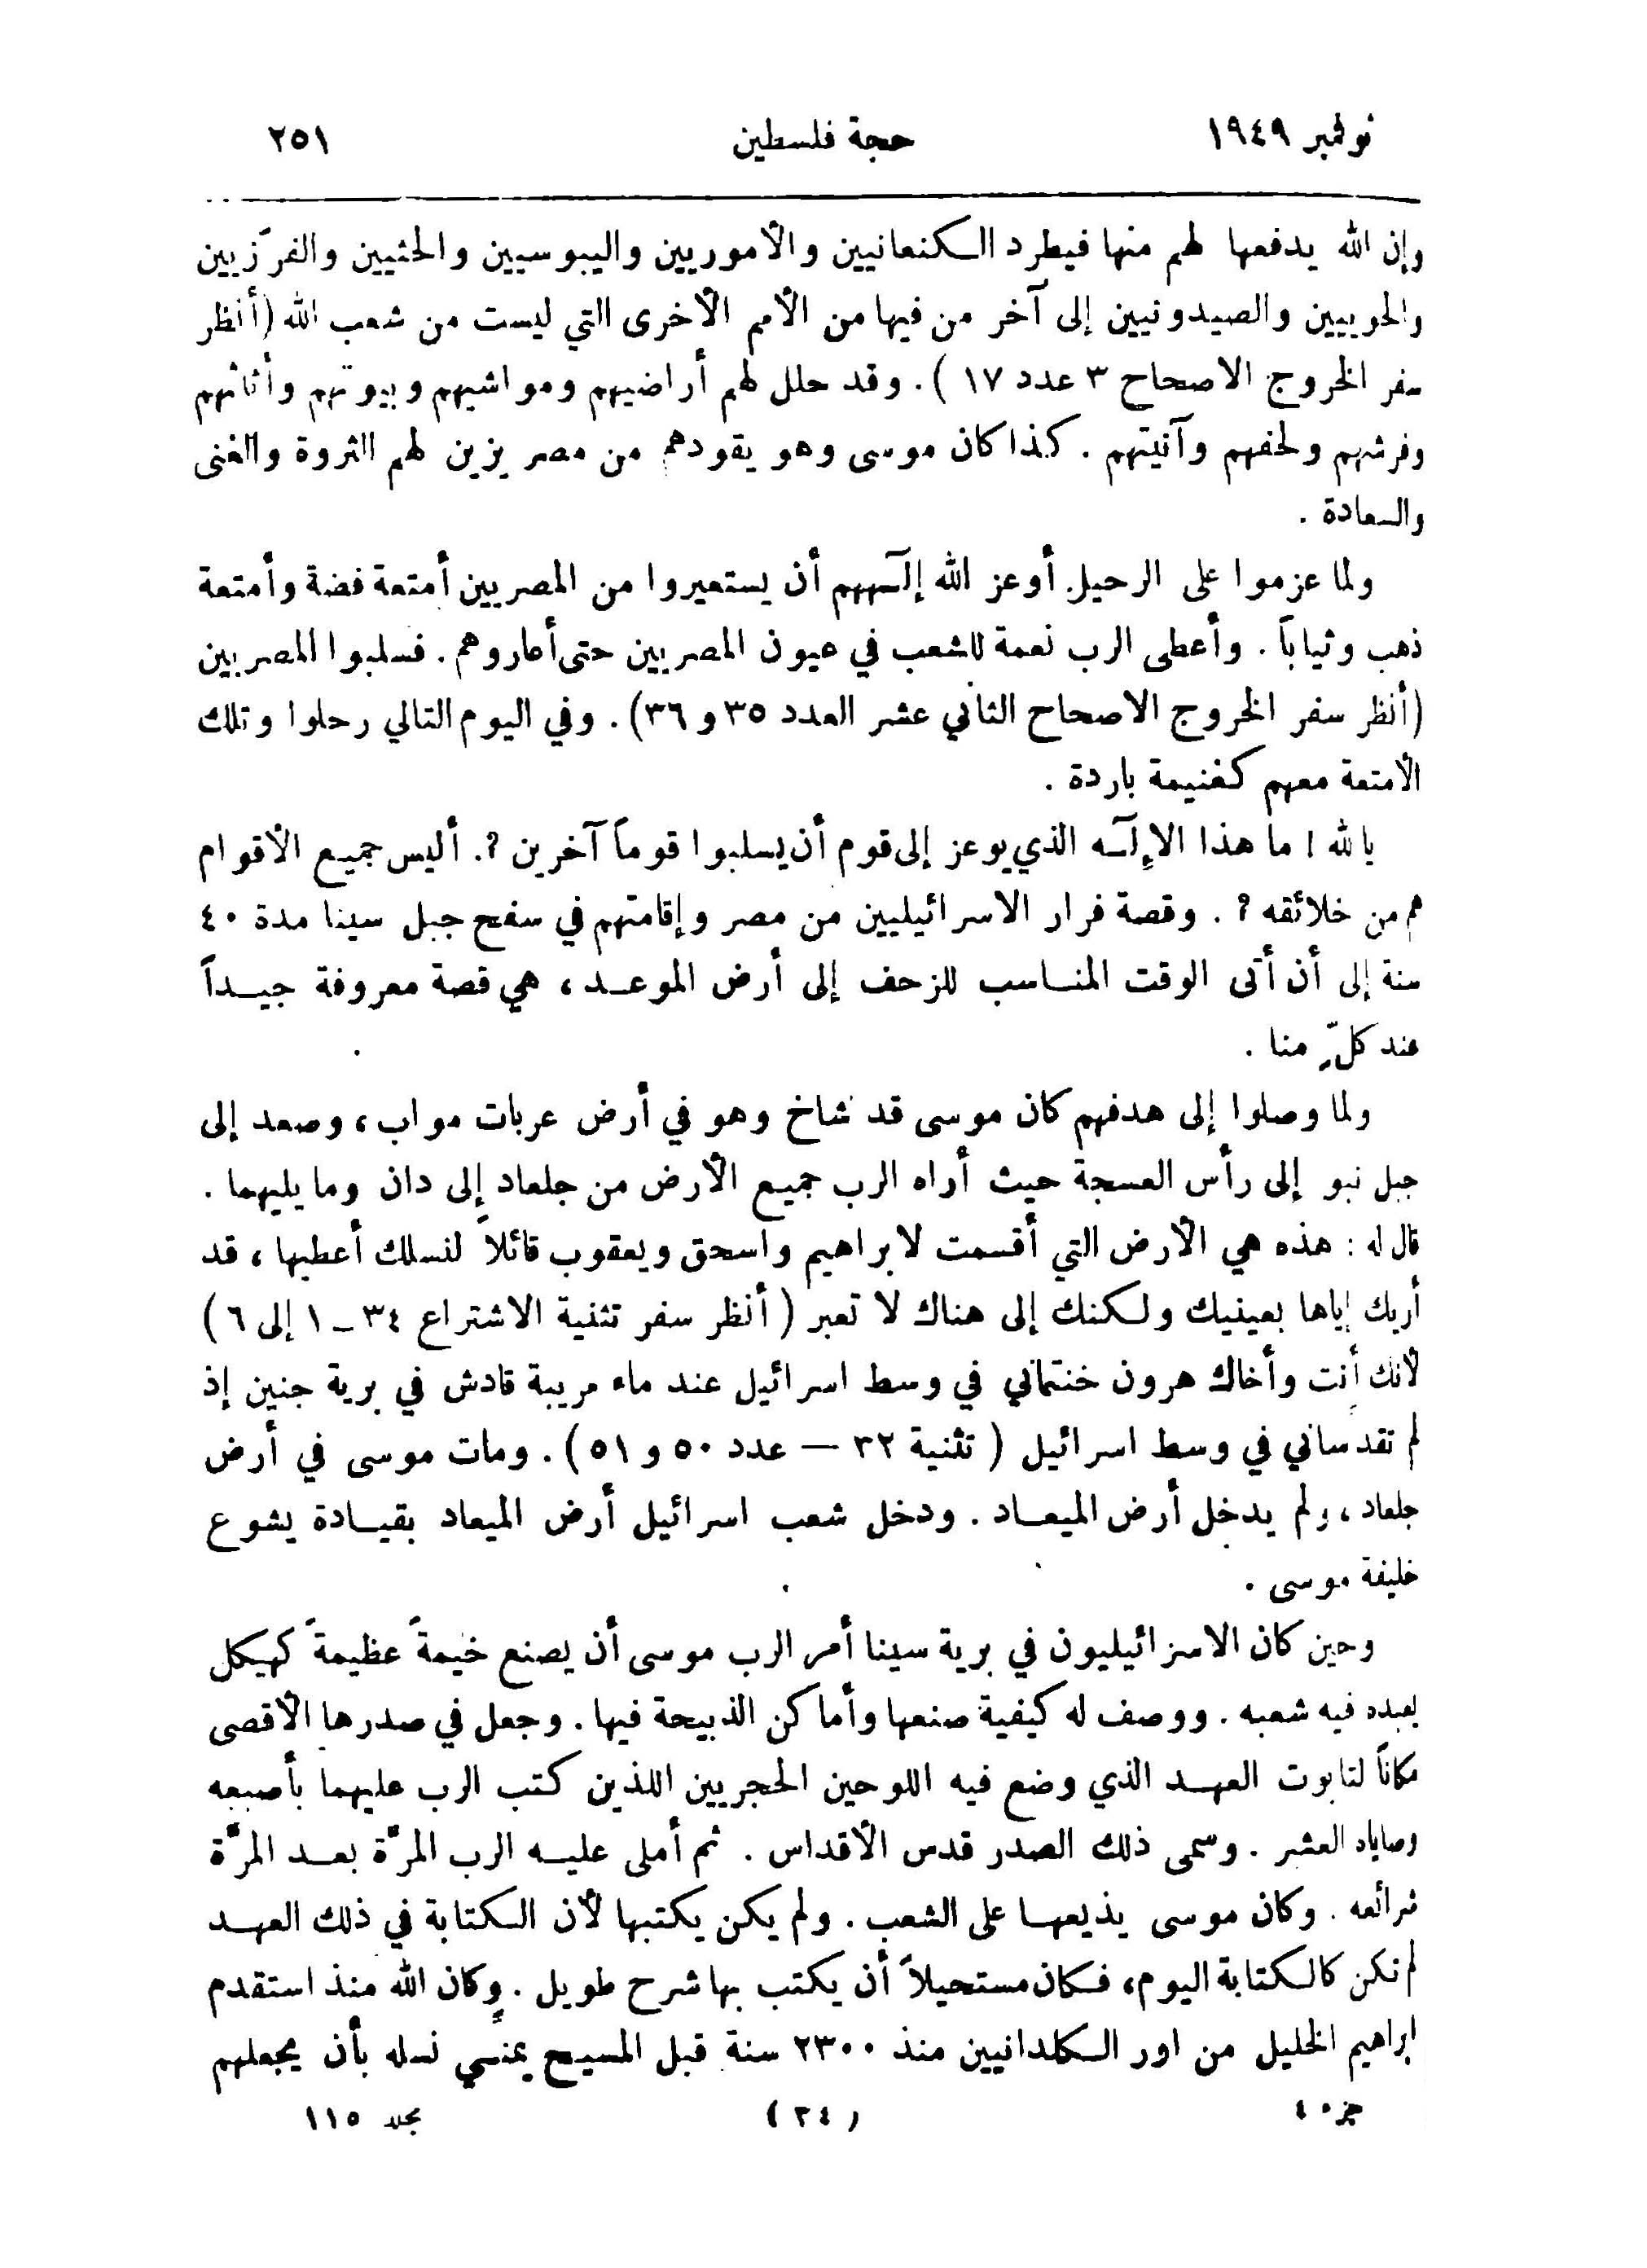 نوفمبر ١٩٤٩ حجة فلسطين ٢٥١
وإن الله يدفعها لهم منها فيطرد الكنعانيين والأموريين واليبوسيين والحثيين والفرّزيين
والحويبين والصيدونيين إلى آخر من فيها من الأمم الأخرى التي ليست من شعب الله (أنظر
سفر الخروج الاصحاح ٣ عدد ١٧ ) . وقد حلل لهم أراضيهم ومواشيهم وبيوتهم وأثاثهم
وفرشهم ولحفهم وآنيتهم . كذا كان موسى وهو يقودهم من مصر يزين لهم الثروة والغنى
والسعادة .
ولما عزموا على الرحيل أوعز الله إلٓـههم أن يستعيروا من المصريين أمتعة فضة وأمتعة
ذهب وثياباً . وأعطى الرب نعمة للشعب في عيون المصريين حتى أعاروهم . فسلبوا المصريين
(أنظر سفر الخروج الاصحاح الثاني عشر العدد ٣٥ و ٣٦) . وفي اليوم التالي رحلوا وتلك
الأمتعة معهم كغنيمة باردة .
يالله ! ما هذا الإلٓـه الذي يوعز إلى قوم أن يسلبوا قوماً آخرين ؟. أليس جميع الأقوام
هم من خلائقه ؟ . وقصة فرار الاسرائيليين من مصر وإقامتهم في سفح جبل سينا مدة ٤٠
سنة إلى أن أتى الوقت المناسب للزحف إلى أرض الموعد ، هي قصة معروفة جيداً
عند كلٍّ منا .
ولما وصلوا إلى هدفهم كان موسى قد شاخ وهو في أرض عربات مواب ، وصعد إلى
جبل نبو إلى رأس الفسجة حيث أراه الرب جميع الأرض من جلعاد إلى دان وما يليهما .
قال له : هذه هي الأرض التي أقسمت لابراهيم واسحق ويعقوب قائلاً لنسلك أعطيها ، قد
أريك إياها بعينيك ولكنك إلى هناك لا تعبر ( أنظر سفر تثنية الاشتراع ٣٤ ـ ١ إلى ٦ )
لأنك أنت وأخاك هرون خنتماني في وسط اسرائيل عند ماء مريبة قادش في برية جنين إذ
لم تقدساني في وسط اسرائيل ( تثنية ٣٢ — عدد ٥٠ و ٥١ ) . ومات موسى في أرض
جلعاد ، ولم يدخل أرض الميعاد . ودخل شعب اسرائيل أرض الميعاد بقيادة يشوع
خليفة موسى .
وحين كان الاسرائيليون في برية سينا أمر الرب موسى أن يصنع خيمةً عظيمةً كهيكل
يعبده فيه شعبه . ووصف له كيفية صنعها وأماكن الذبيحة فيها . وجعل في صدرها الأقصى
مكاناً لتابوت العهد الذي وضع فيه اللوحين الحجريين اللذين كتب الرب عليهما بأصبعه
وصاياه العشر . وسمى ذلك الصدر قدس الأقداس . ثم أملى عليه الرب المرّة بعد المرّة
شرائعه . وكان موسى يذيعها على الشعب . ولم يكن يكتبها لأن الكتابة في ذلك العهد
لم تكن كالكتابة اليوم ، فكان مستحيلاً أن يكتب بها شرح طويل . وكان الله منذ استقدم
ابراهيم الخليل من اور الكلدانيين منذ ٢٣٠٠ سنة قبل المسيح يمنّي نسله بأن يجعلهم
جزء ٤ (٣٤) مجلد ١١٥